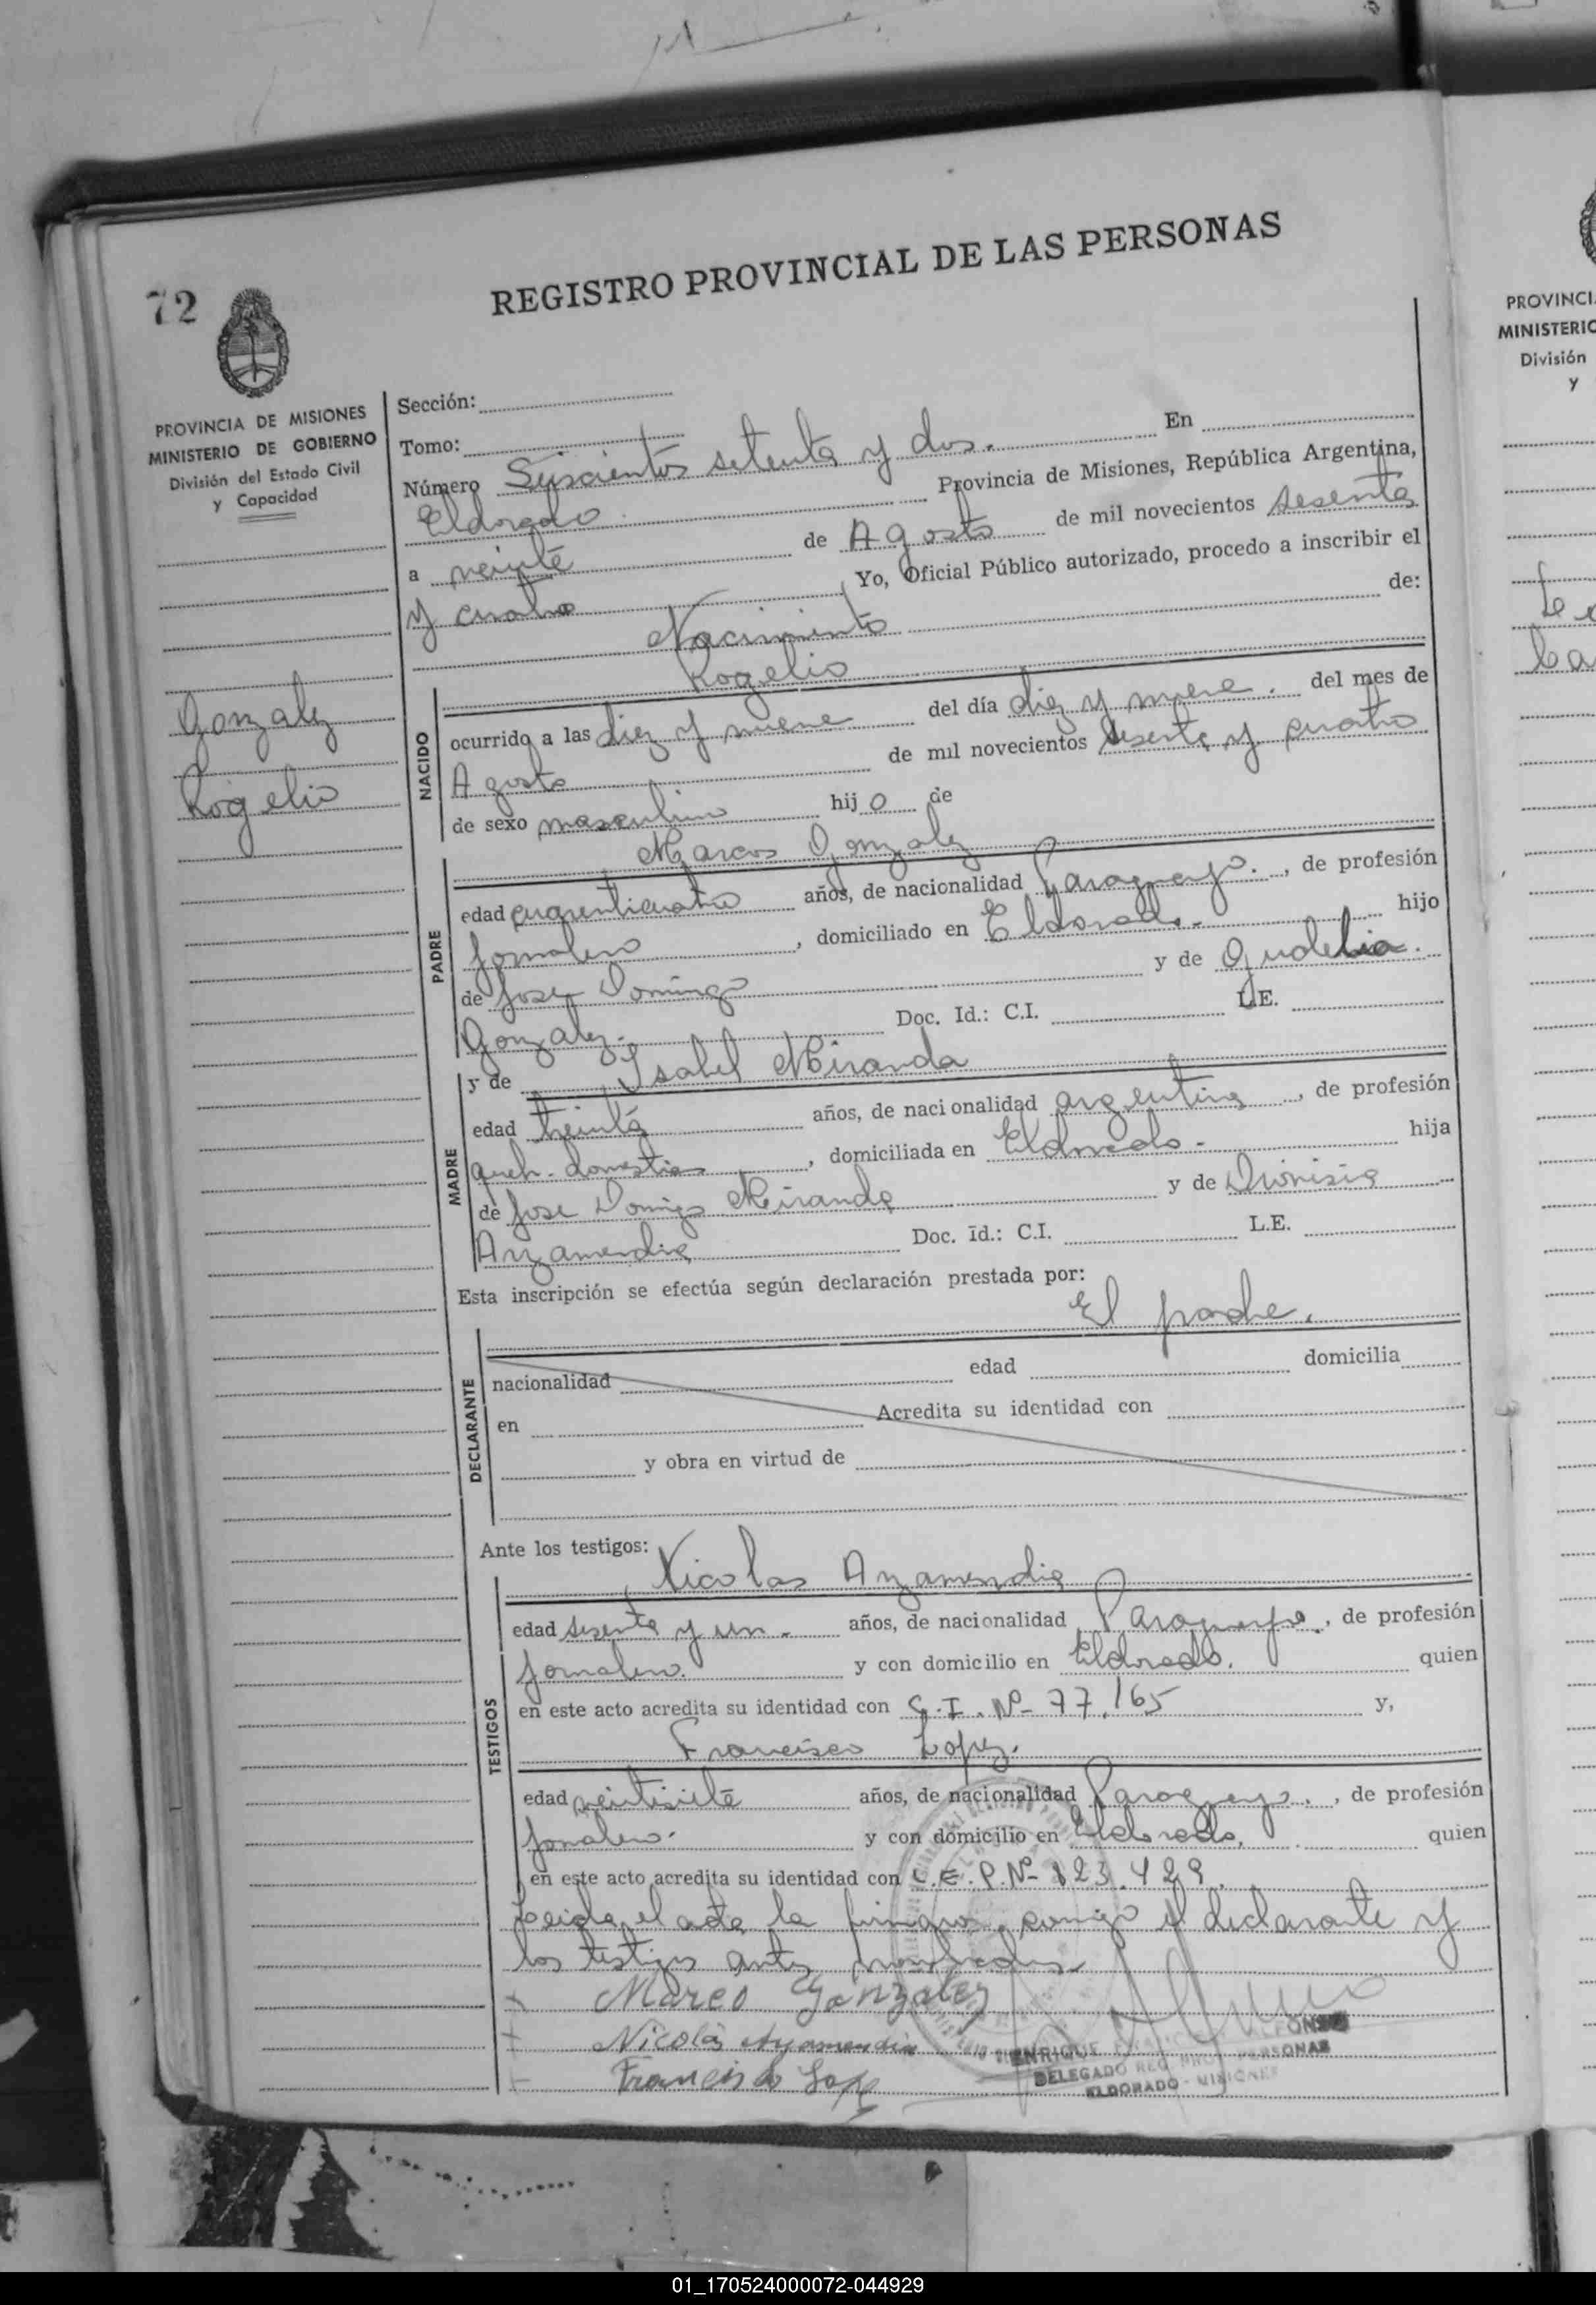 REGISTRO PROVINCIAL DE LAS PERSONAS
72
PROVINCIA DE MISIONES
MINISTERIO DE GOBIERNO
División del Estado Civil
y Capacidad
Gonzalez
Rogelio
Sección:
Tomo:
Número Seiscientos setenta y dos. En
Eldorado Provincia de Misiones, República Argentina,
a veinte de Agosto de mil novecientos sesenta
y cuatro Yo, Oficial Público autorizado, procedo a inscribir el
Nacimiento de:
Rogelio
NACIDO
ocurrido a las diez y nueve del día diez y nueve. del mes de
Agosto de mil novecientos sesenta y cuatro
de sexo masculino hijo de
Marcos Gonzalez
PADRE
edad cuarenticuatro años, de nacionalidad Paraguayo. , de profesión
Jornalero , domiciliado en Eldorado.- hijo
de Jose Domingo y de
Gonzalez.- Doc. Id.: C.I. L.E.
y de Isabel Miranda
MADRE
edad treinta años, de nacionalidad argentina , de profesión
queh. domestico , domiciliada en Eldorado.- hija
de Jose Domingo Miranda y de Dionisia
Ayamendia Doc. Id.: C.I. L.E.
Esta inscripción se efectúa según declaración prestada por:
El padre.
DECLARANTE
nacionalidad edad domicilia
en Acredita su identidad con
y obra en virtud de
Ante los testigos:
Nicolas Ayamendia
TESTIGOS
edad sesenta y un. años, de nacionalidad Paraguayo. , de profesión
Jornalero. y con domicilio en Eldorado. quien
en este acto acredita su identidad con C.I. Nº 77.165 y,
Francisco Lopez.
edad veintisiete años, de nacionalidad Paraguayo. , de profesión
Jornalero. y con domicilio en Eldorado. quien
en este acto acredita su identidad con C.E.P. Nº 123.429.
Leida el acta la firmaron conmigo el declarante y
los testigos antes nombrados.
Marco Gonzalez
Nicolás Ayamendia
Francisco Lope
ENRIQUE ALFONSO
DELEGADO REG. PROV. PERSONAS
ELDORADO - MISIONES
PROVINCI
MINISTERIO
División
y
01_170524000072-044929